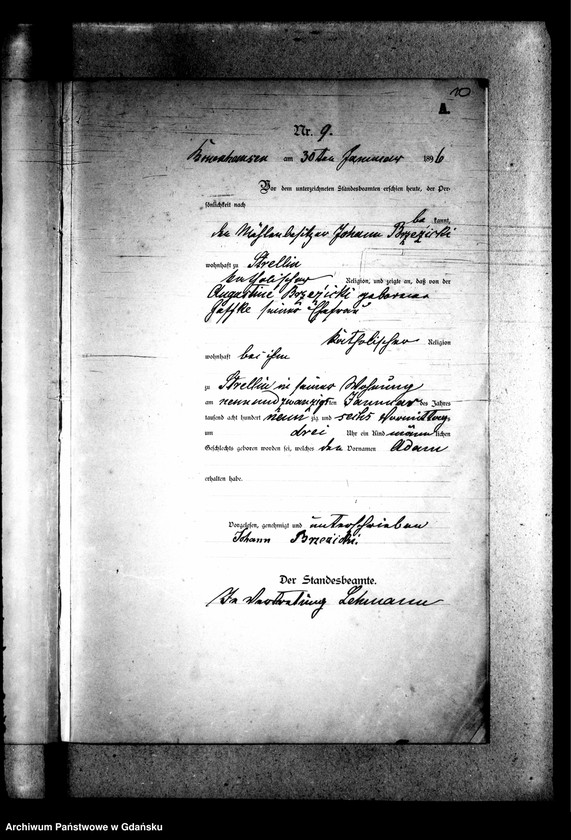 10
A.
Nr. 9.
am 30ten Januar 1896
Vor dem unterzeichneten Standesbeamten erschien heute, der Per-
sönlichkeit nach
be kannt,
den Mühlenbesitzer Johann Brzezicki
wohnhaft zu Strellin
katholischer Religion, und zeigte an, daß von der
Augustine Brzezicki geborenen
seiner Ehefrau
katholischer Religion
wohnhaft bei ihm
zu Strellin in seiner Wohnung
am neunundzwanzigsten Januar des Jahres
tausend acht hundert neun zig und sechs Vormittags
um drei Uhr ein Kind männlichen
Geschlechts geboren worden sei, welches den Vornamen Adam
erhalten habe.
Vorgelesen, genehmigt und unterschrieben
Johann Brzezicki.
Der Standesbeamte.
In Vertretung Lehmann
Archiwum Państwowe w Gdańsku